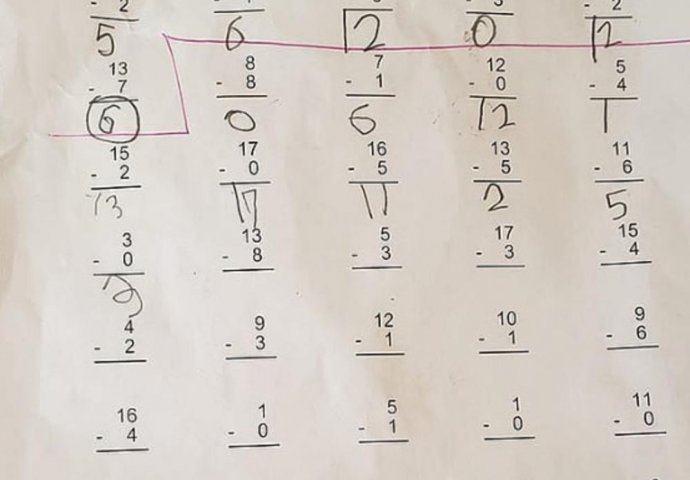 - 2 - 3 - 2
5 6 12 0 12
13 8 7 12 5
- 7 - 8 - 1 - 0 - 4
6 0 6 12 1
15 17 16 13 11
- 2 - 0 - 5 - 5 - 6
13 17 11 2 5
3 13 5 17 15
- 0 - 8 - 3 - 3 - 4
3
4 9 12 10 9
- 2 - 3 - 1 - 1 - 6
16 1 5 1 11
- 4 - 0 - 1 - 0 - 0